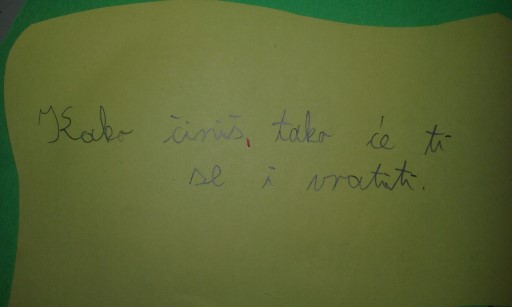 Kako činiš, tako će ti
se i vratiti.